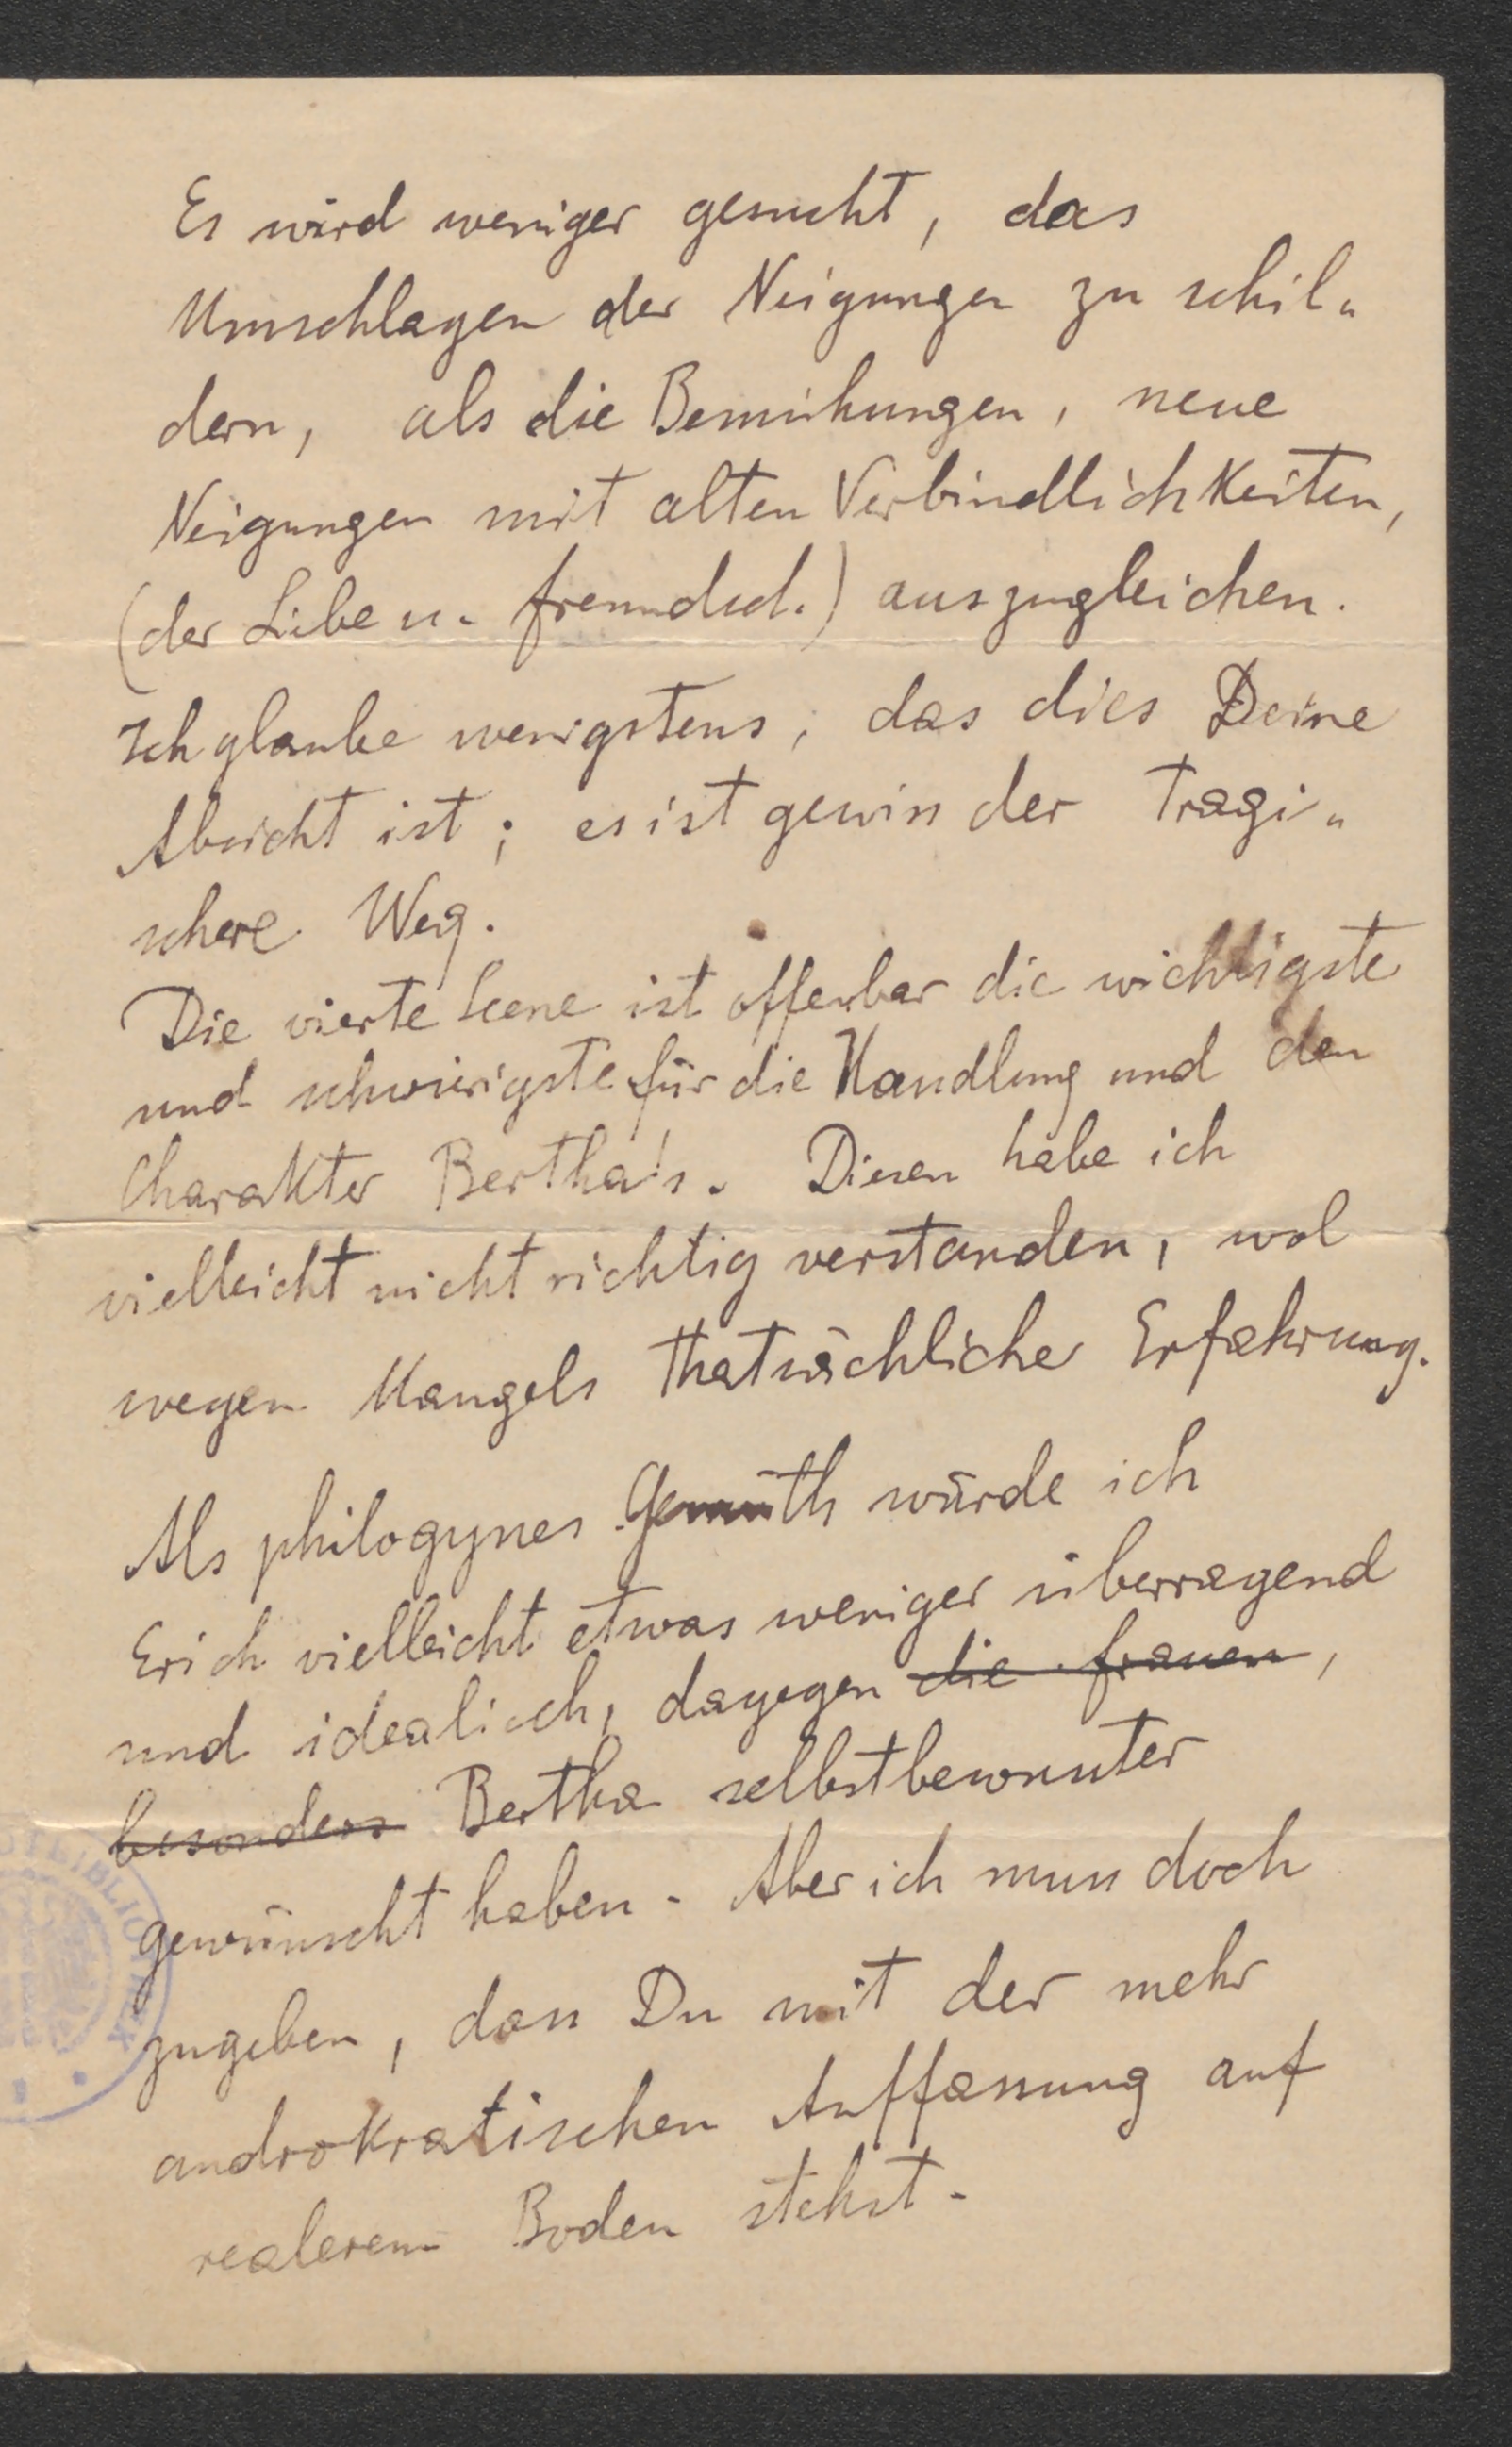 Es wird weniger gesucht, das
Umschlagen der Neigungen zu schil„
dern, als die Bemühungen, neue
Neigungen mit alten Verbindlichkeiten,
(der Liebe u. freundsch.) auszugleichen.
Ich glaube wenigstens, das dies Deine
Absicht ist; es ist gewiss der tragi„
schere Weg.
Die vierte Scene ist offenbar die wichtigste
und schwierigste für die Handlung und den
Charakter Bertha's. Diesen habe ich
vielleicht nicht richtig verstanden, wol
wegen Mangels thatsächlicher Erfahrung.
Als philogynes Gemüth würde ich
Erich vielleicht etwas weniger überragend
und idealisch, dagegen die frauen,
besonders Bertha selbstbewusster
gewünscht haben. Aber ich muss doch
zugeben, dass Du mit der mehr
androkratischen Auffassung auf
realerem Boden stehst.
BIBLIOTHEK